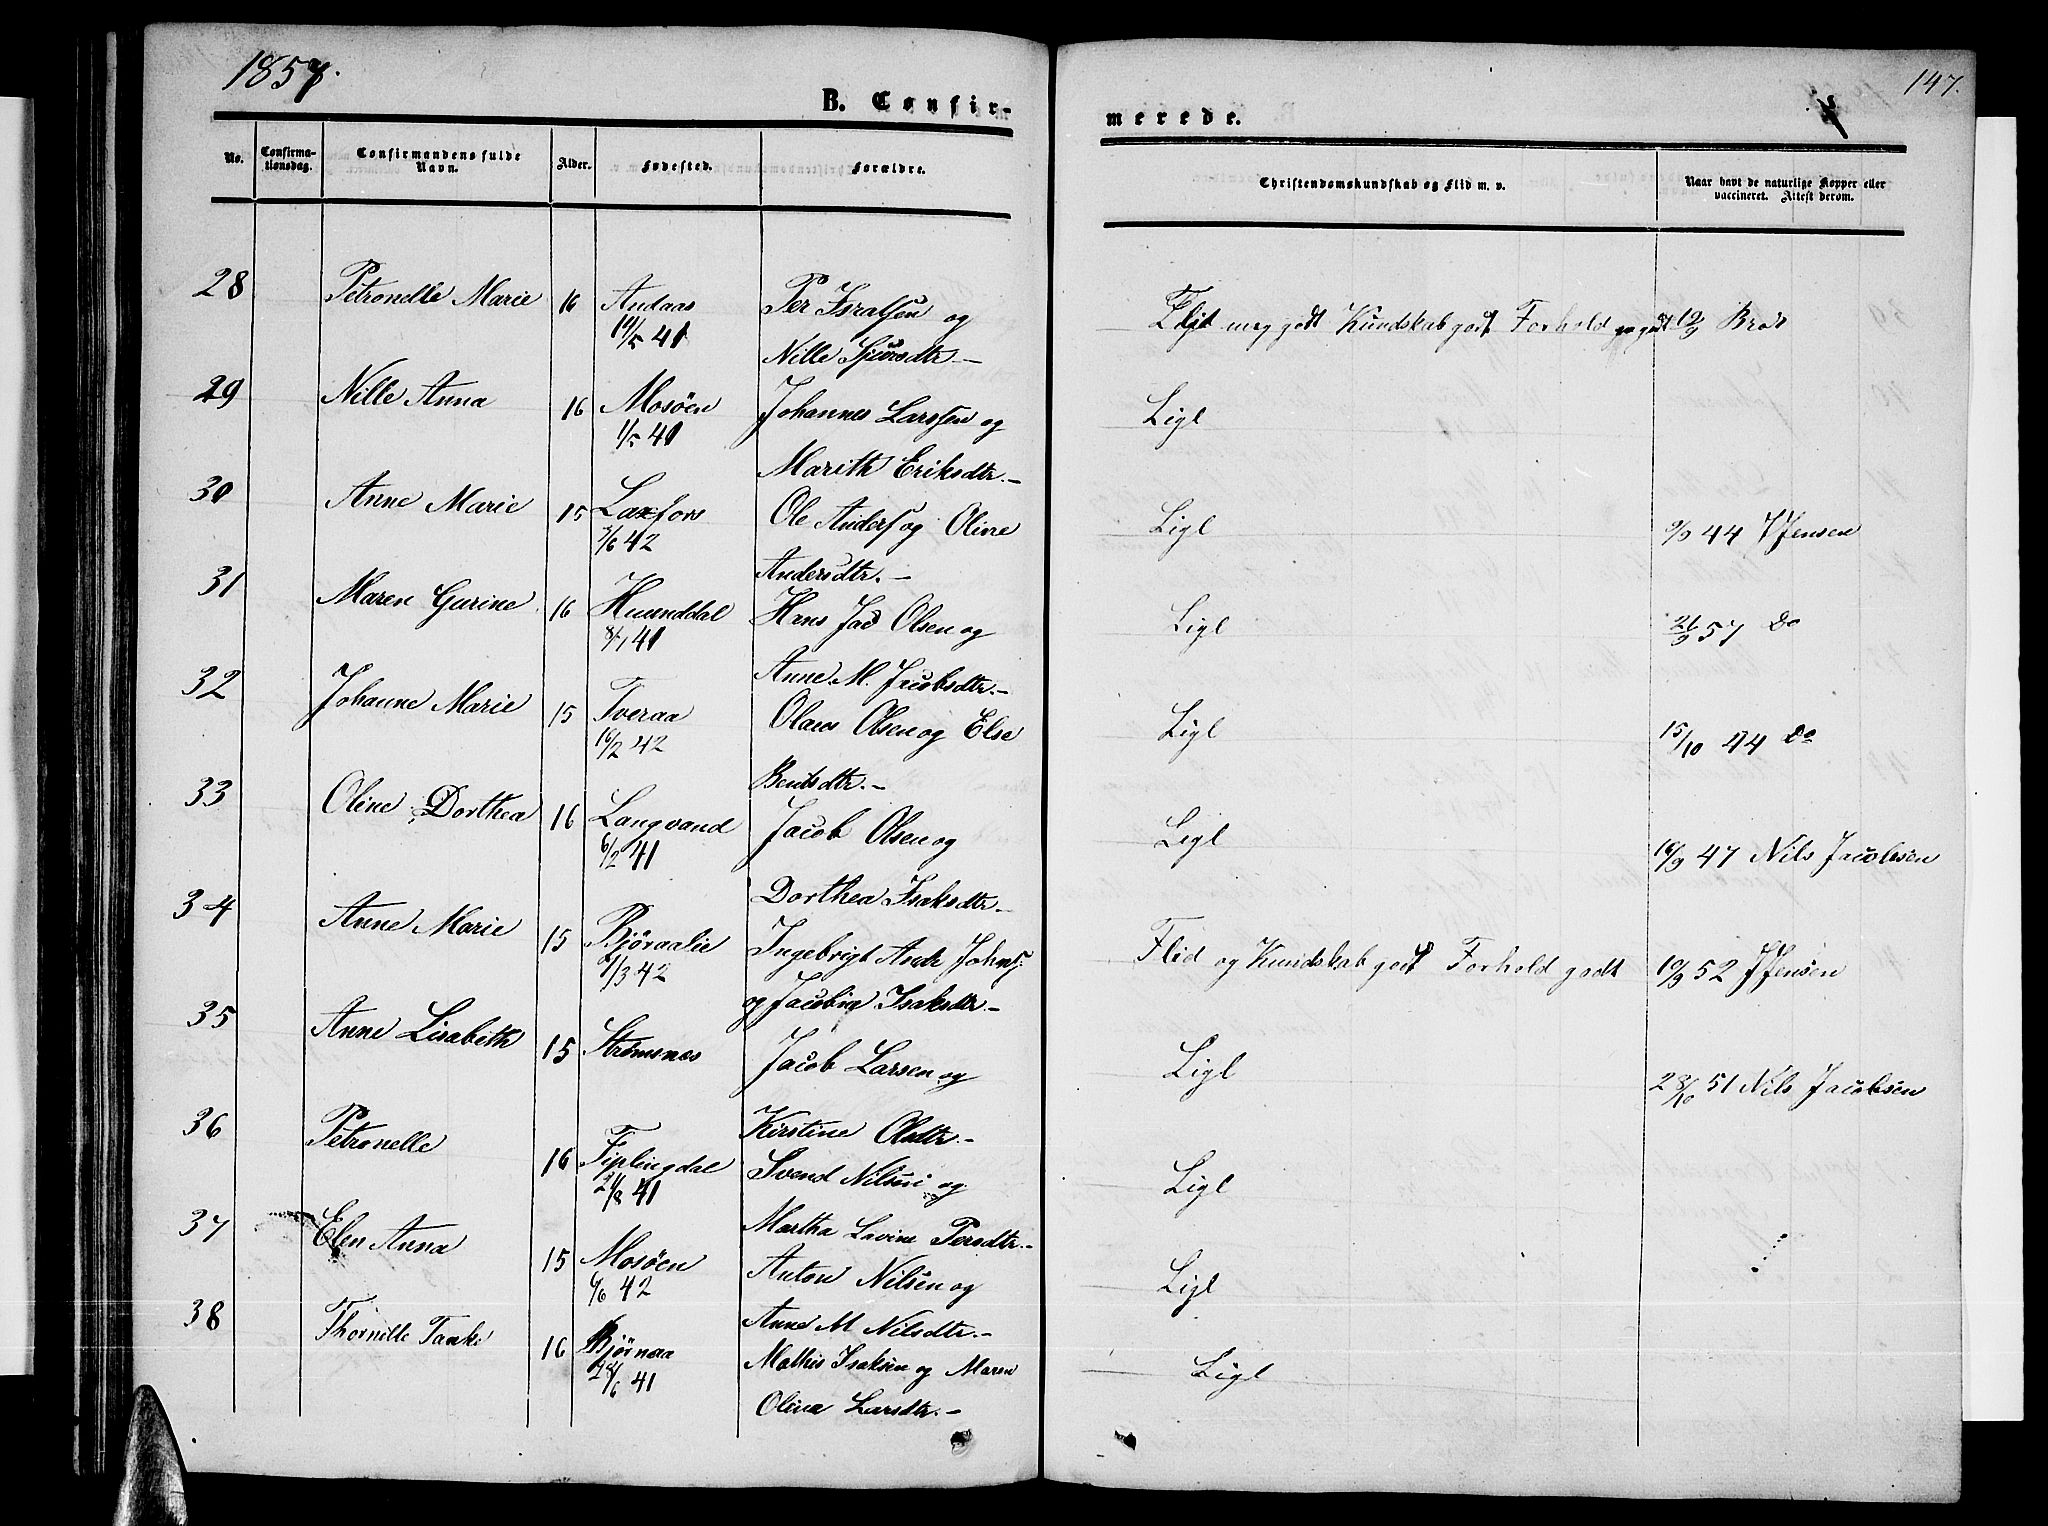 1857.
147.
B. Confir-
merede.
No.
Confirma-
tionsdag.
Confirmandens fulde
Navn.
Alder.
Fødested.
Forældre.
Christendomskundskab og Flid m. v.
Naar havt de naturlige Kopper eller
vaccineret. Attest derom.
28 Petronelle Marie 16 Andaas Per Israelsen og
41 Nille Sjursdtr. –
Flid meg godt Kundskab godt Forhold
29 Nille Anna 16 Mosøen Johannes Larssen og
1/5 41 Marith Eriksdtr. –
Ligl
30 Anne Marie 15 Laxfors Ole Anders og Oline
/6 42 Andersdtr. –
Ligl 9/9 44 J Jensen
31 Maren Gurine 16 Hunddal Hans Jac Olsen og
41 Anne M. Jacobsdtr. –
Ligl 21/9 57 Do
32 Johanne Marie 15 Tveraa Olaus Olsen og Else
16/2 42 Bentsdtr. –
Ligl 15/10 44 Do
33 Oline Dorthea 16 Langvand Jacob Olsen og
6/2 41 Dorthea Isaksdtr. –
Ligl 16/9 47 Nils Jacobsen
34 Anne Marie 15 Bjøraalie Ingebrigt Andr Johns.
/3 42 og Jacobia Isaksdtr. –
Flid og Kundskab godt Forhold godt 10/9 52 J Jensen
35 Anne Lisabeth 15 Strømsnæs Jacob Larsen og
Kirstine Olsdtr. –
Ligl 28/10 51 Nils Jacobsen
36 Petronelle 16 Fiplingdal Svend Nilsen og
21/8 41 Martha Lovine Persdtr. –
Ligl
37 Elen Anna 15 Mosøen Anton Nilsen og
6/6 42 Anne M Nilsdtr. –
Ligl
38 Thornille Tanke 16 Bjørnaa Mathis Isaksen og Maren
28/6 41 Olina Larsdtr. –
Ligl